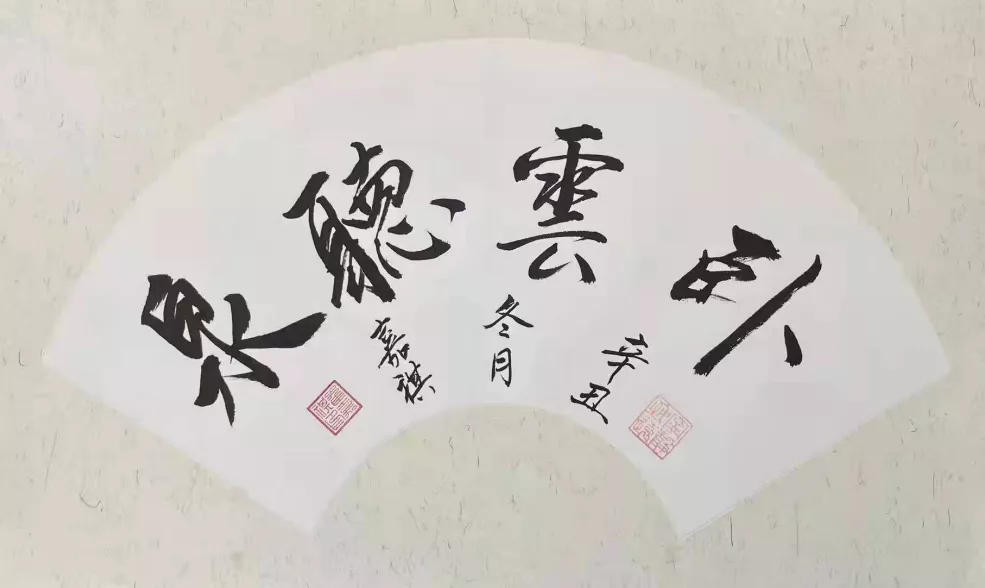 卧雲聽泉
辛丑
冬月
嘉祺